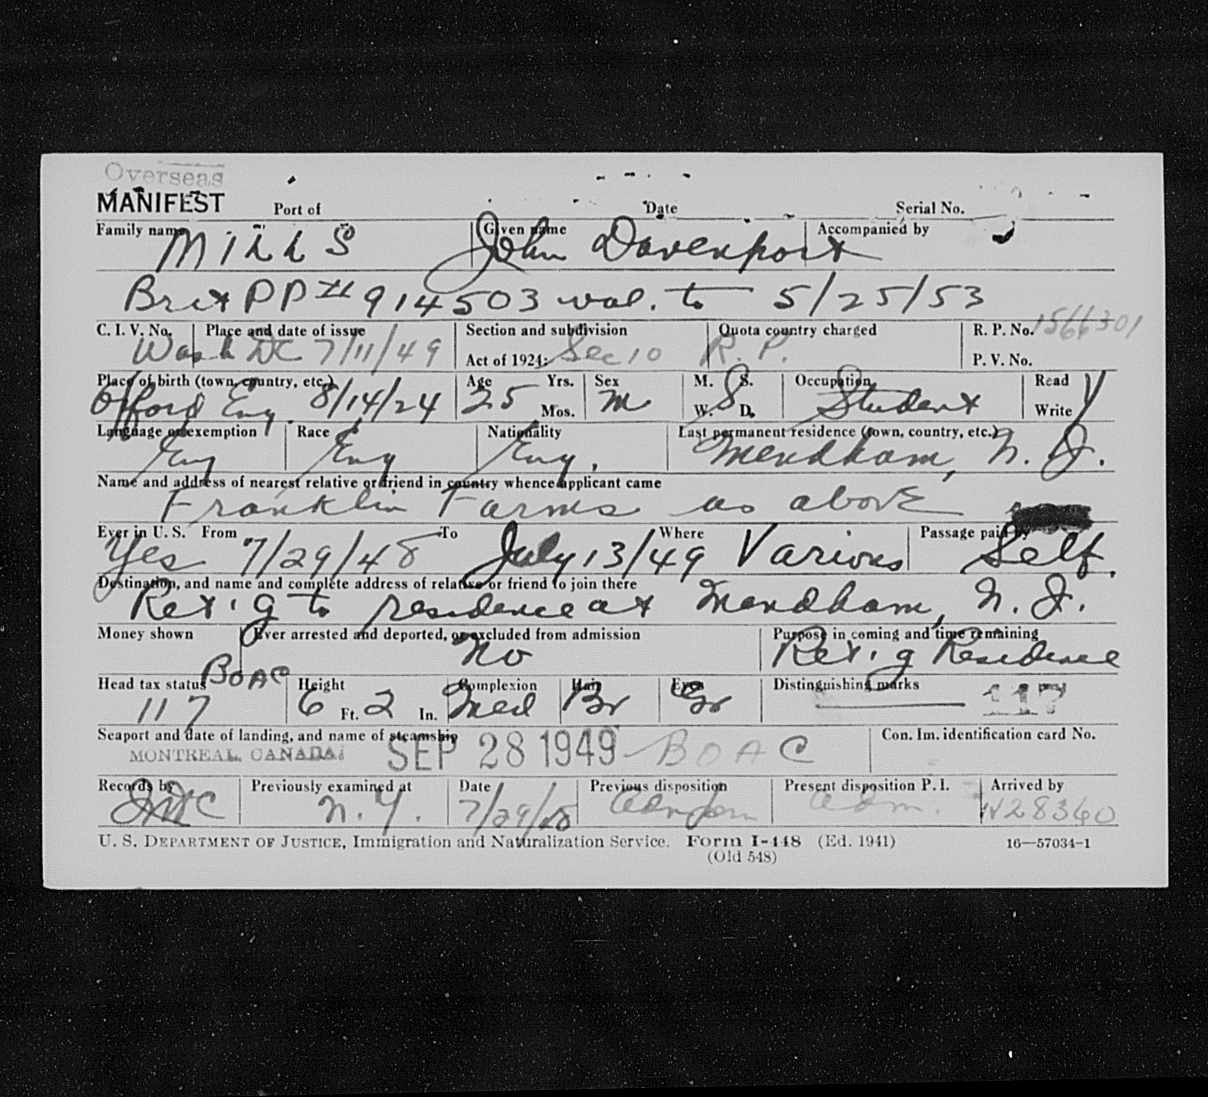 Overseas
MANIFEST Port of Date Serial No.
Family name MILLS Given name John Davenport Accompanied by
Brit PP # 914503 val. to 5/25/53
C. I. V. No. Place and date of issue Section and subdivision Quota country charged R. P. No. 1566301
Wash DC 7/11/49 Act of 1924: Sec 10 R. P. P. V. No.
Place of birth (town, country, etc.) Age Yrs. Sex M. S. Occupation Read
Offord Eng. 8/14/24 25 Mos. M W. D. Student Write
Language or exemption Race Nationality Last permanent residence (town, country, etc.)
Eng Eng Eng. Mendham, N. J.
Name and address of nearest relative or friend in country whence applicant came
Franklin Farms as above
Ever in U. S. From To Where Passage paid by
Yes 7/29/48 July 13/49 Various Self.
Destination, and name and complete address of relative or friend to join there
Ret'g to residence at Mendham, N. J.
Money shown Ever arrested and deported, or excluded from admission Purpose in coming and time remaining
No Ret'g Residence
Head tax status BOAC Height Complexion Hair Eyes Distinguishing marks
117 6 Ft. 2 In. Med Br Gr 117
Seaport and date of landing, and name of steamship Con. Im. identification card No.
MONTREAL, CANADA. SEP 28 1949 - BOAC
Records by Previously examined at Date Previous disposition Present disposition P. I. Arrived by
N. Y. 7/29/48 adm. 28360
U. S. DEPARTMENT OF JUSTICE, Immigration and Naturalization Service. Form I-448 (Ed. 1941) 16—57034-1
(Old 548)